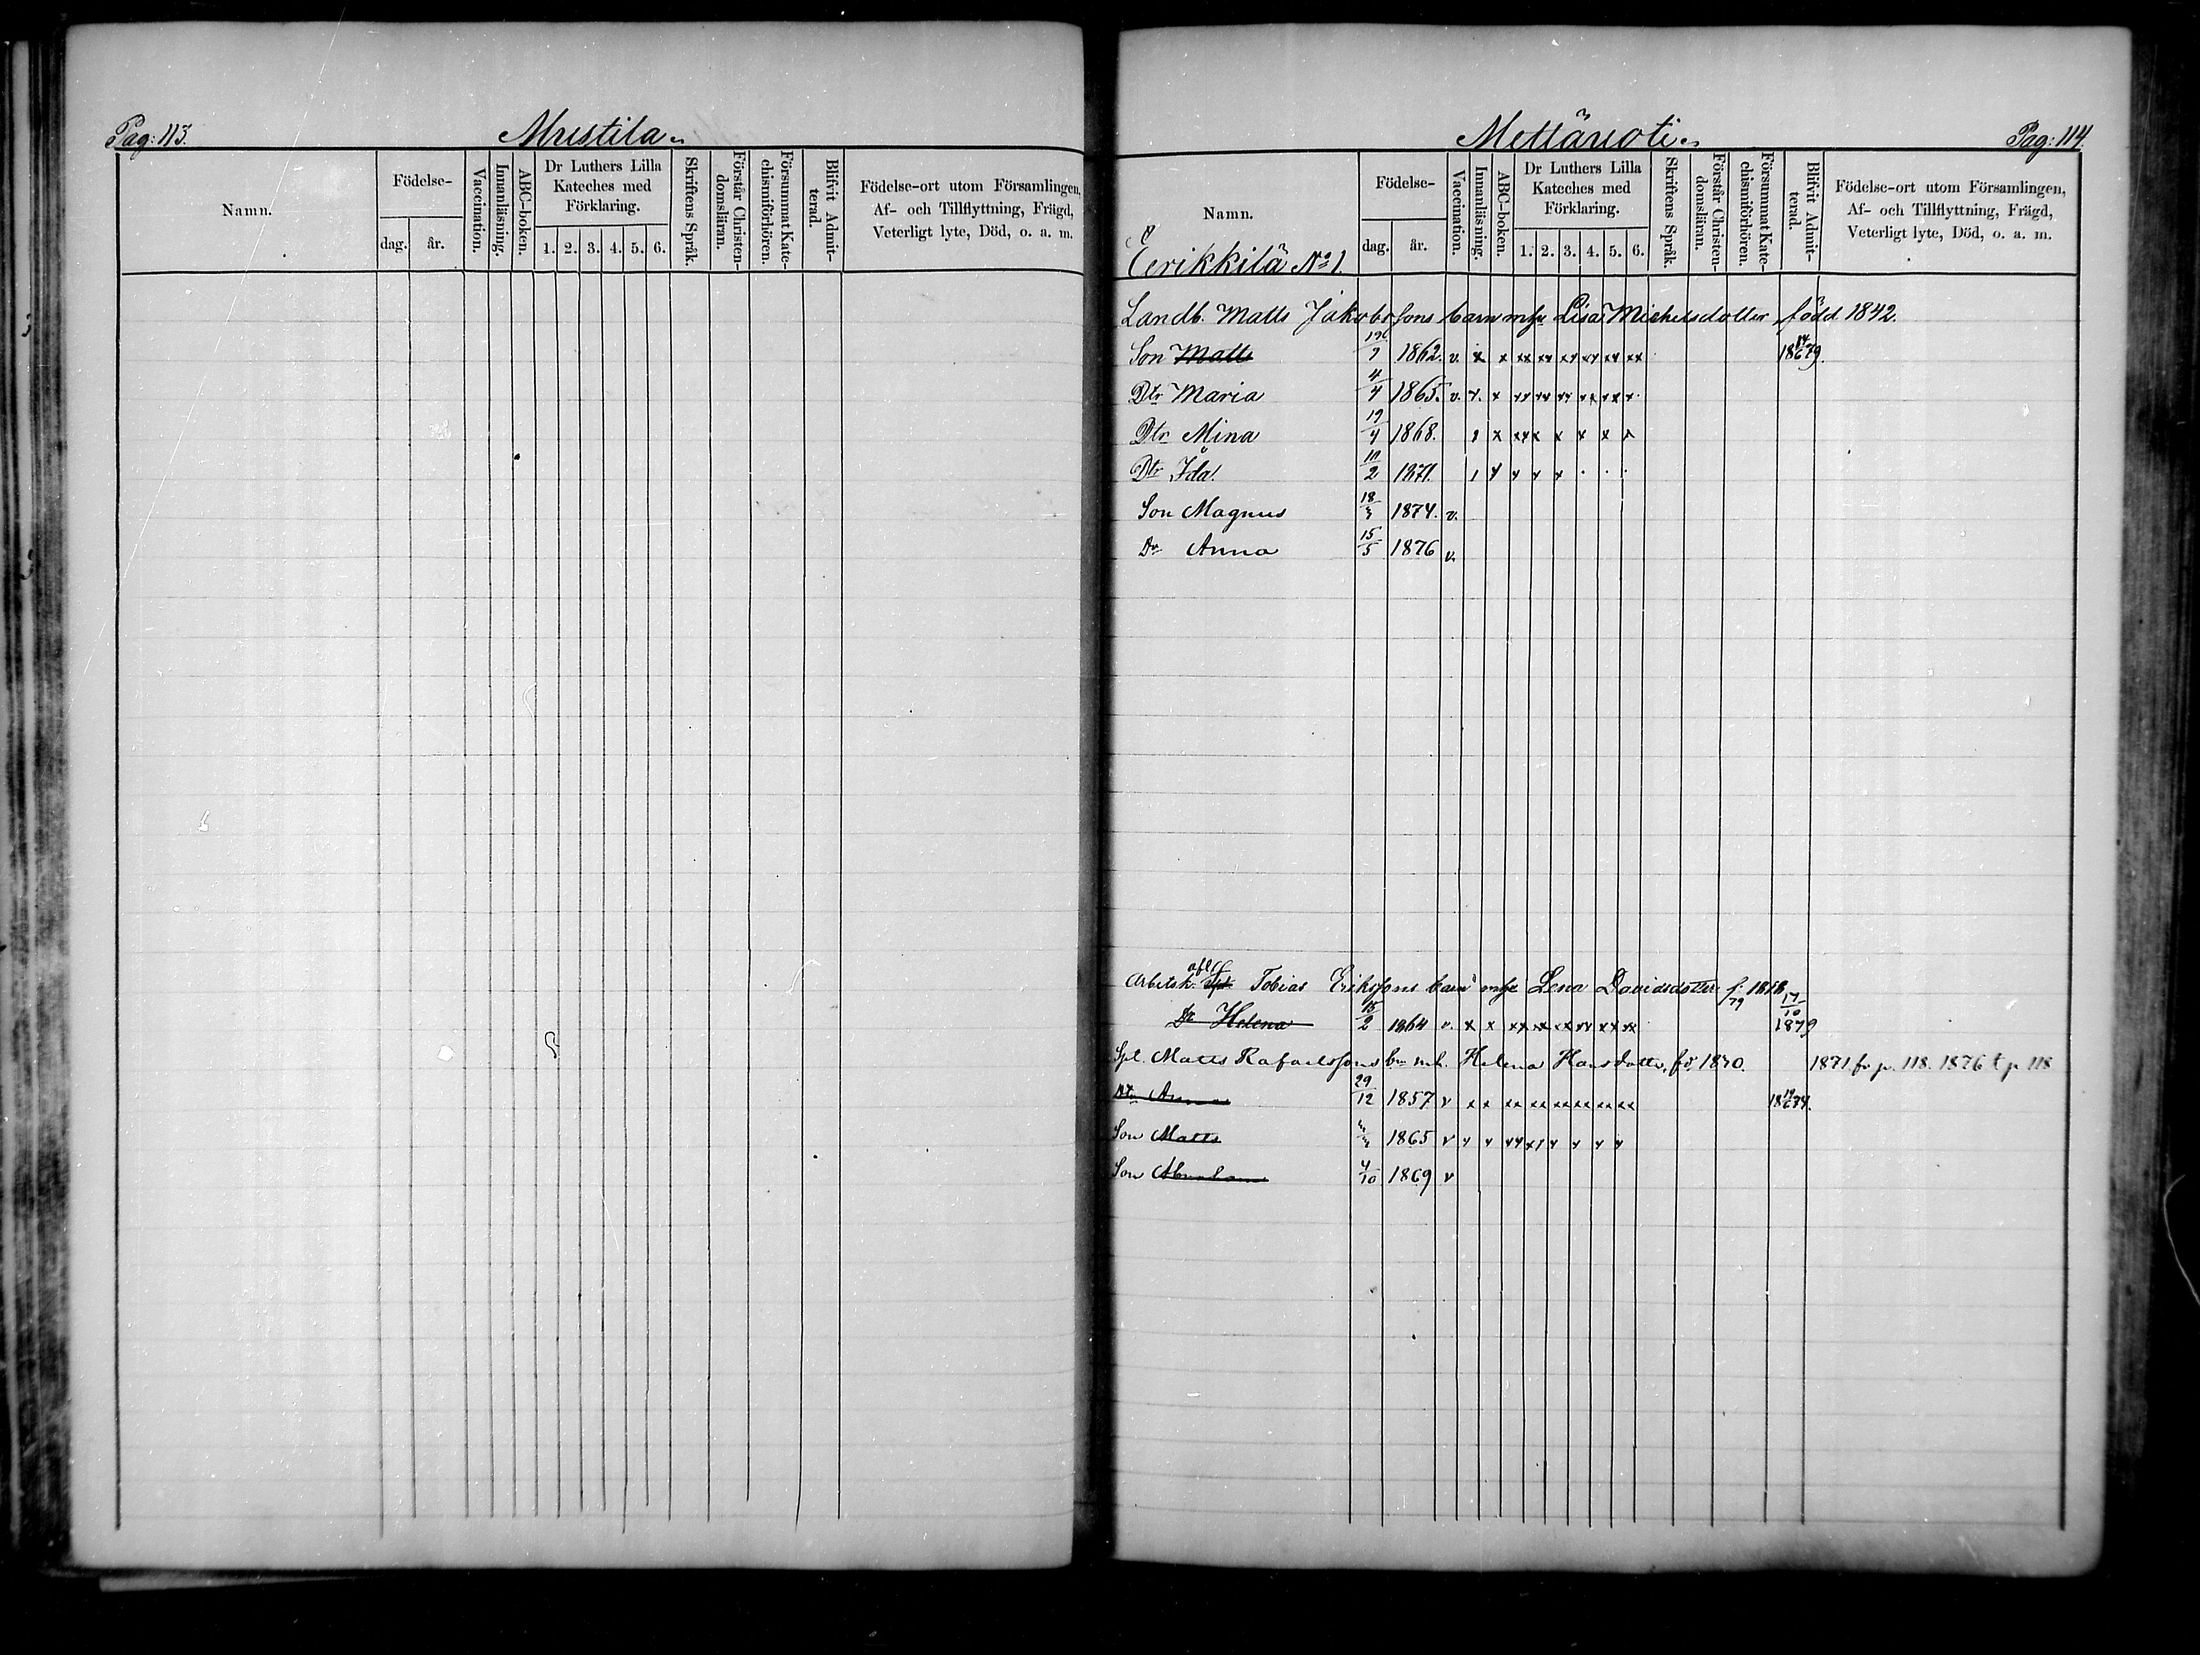 Pag: 113.
Mustila
Namn.
Födelse-
dag.
år.
Vaccination.
Innanläsning.
ABC-boken.
Dr Luthers Lilla Kateches med Förklaring.
1. 2. 3. 4. 5. 6.
Skriftens Språk.
Förstår Christen-domsläran.
Försummat Kate-chismiförhören.
Blifvit Admit-terad.
Födelse-ort utom Församlingen,
Af- och Tillflyttning, Frägd,
Veterligt lyte, Död, o. a. m.
Mettäuoti
Pag: 114.
Namn.
Födelse-
dag.
år.
Vaccination.
Innanläsning.
ABC-boken.
Dr Luthers Lilla Kateches med Förklaring.
1. 2. 3. 4. 5. 6.
Skriftens Språk.
Förstår Christen-domsläran.
Försummat Kate-chismiförhören.
Blifvit Admit-terad.
Födelse-ort utom Församlingen,
Af- och Tillflyttning, Frägd,
Veterligt lyte, Död, o. a. m.
Eerikkilä No 1.
Landb. Matts Jakobssons barn m hu Lisa Michelsdotter, född 1842.
Son Matts 1862. v. x x xx xx xx xx xx xx 18 14/6 79.
Dtr Maria 4/4 1865. v. x. x xx xx xx xx xx x
Dtr Mina 19/4 1868. x xx x x x x
Dtr Ida. 2 1871.
Son Magnus 18/3 1874. v.
Dr Anna 15/5 1876 v.
Arbetsk. Tobias Erikssons barn m hu Lena Davidsdotter f. 1818
Dr Helena 15/2 1864 v. x x xx xx xx xx xx xx 17/10 1879
Spl. Matts Rafaelssons bn m h. Helena Hansdotter, fd. 1830. 1871 fr p. 118. 1876 t p 118
Dtr Anna 29/12 1857 v x x xx xx xx xx xx xx 74.
Son Matts 1865 v
Son Abraham 4/10 1869 v